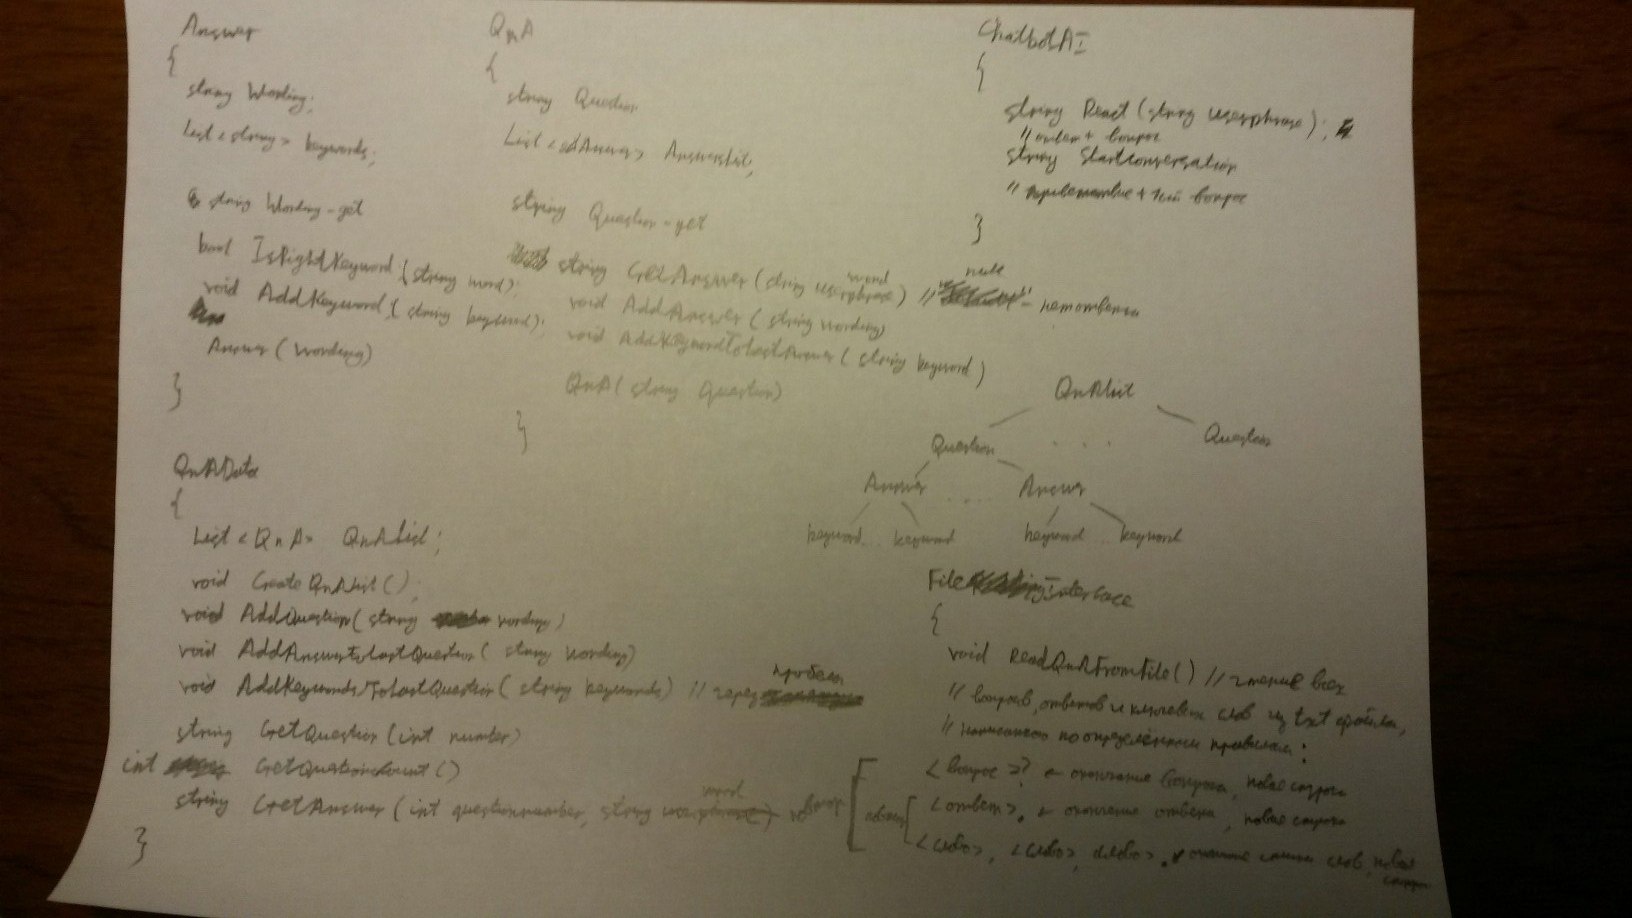 Answer
{
string Wording;
List <string> keywords;
string Wording-get
bool IsRightKeyword (string word);
void AddKeyword (string keyword);
Answer (wording)
}
QnA
{
string Question
List <Answer> AnswerList;
string Question-get
string GetAnswer (string word) // null - нет ответа
void AddAnswer (string wording)
void AddKeywordToLastAnswer (string keyword)
QnA (string Question)
}
ChatbotAI
{
string React (string userphrase);
// ответ + вопрос
string StartConversation
// приветствие + 1ый вопрос
}
QnAlist
Question ... Question
Answer ... Answer
keyword ... keyword keyword ... keyword
QnAData
{
List <QnA> QnAList;
void CreateQnAList();
void AddQuestion (string wording)
void AddAnswerToLastQuestion (string wording)
void AddKeywordsToLastQuestion (string keywords) // через пробелы
string GetQuestion (int number)
int GetQuestionCount ()
string GetAnswer (int questionnumber, string word)
File Interface
{
void ReadQnAFromFile() // чтение всех
// вопросов, ответов и ключевых слов из txt файла,
// написанного по определённым правилам:
<вопрос>? ← окончание вопроса, новая строка
<ответ>. ← окончание ответа, новая строка
<слово>, <слово>, <слово>. окончание слов, новая строка
}